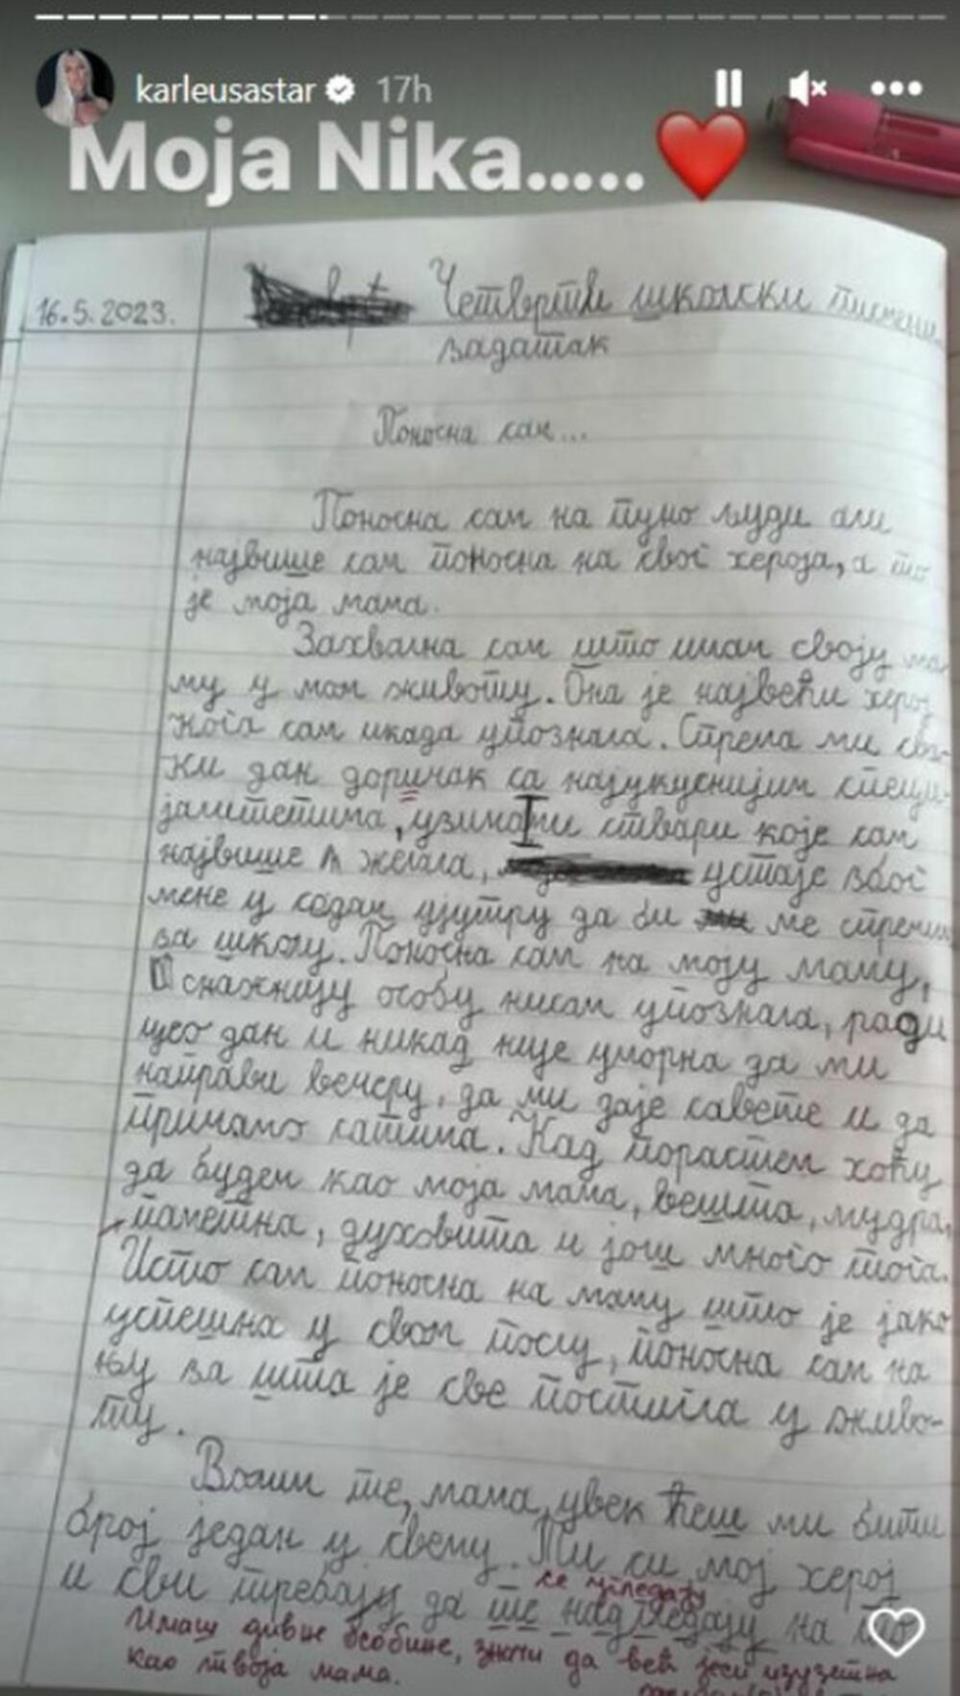 karleusastar 17h
Moja Nika.....❤️
16.5.2023.
Четврти школски писмени
задатак
Поносна сам...
Поносна сам на пуно људи али
највише сам поносна на свог хероја, а то
је моја мама.
Захвална сам што имам своју ма-
му у мом животу. Она је највећи херој
кога сам икада упознала. Спрема ми сва-
ки дан доручак са најукуснијим специ-
јалитетима, узима ми ствари које сам
највише желела, устаје због
мене у седам ујутру да би ме спреми
за школу. Поносна сам на моју маму,
снажнију особу нисам упознала, ради
цео дан и никад није уморна да ми
направи вечеру, да ми даје савете и да
причамо сатима. Кад порастем хоћу
да будем као моја мама, вешта, мудра,
паметна, духовита и још много тога.
Исто сам поносна на маму што је јако
успешна у свом послу, поносна сам на
њу за шта је све постигла у живо-
ту.
Волим те, мама, увек ћеш ми бити
број један у свему. Ти си мој херој
се угледају
и сви требају да те надгледају на то
Имаш дивне особине, значи да већ јеси изузетна
као твоја мама.